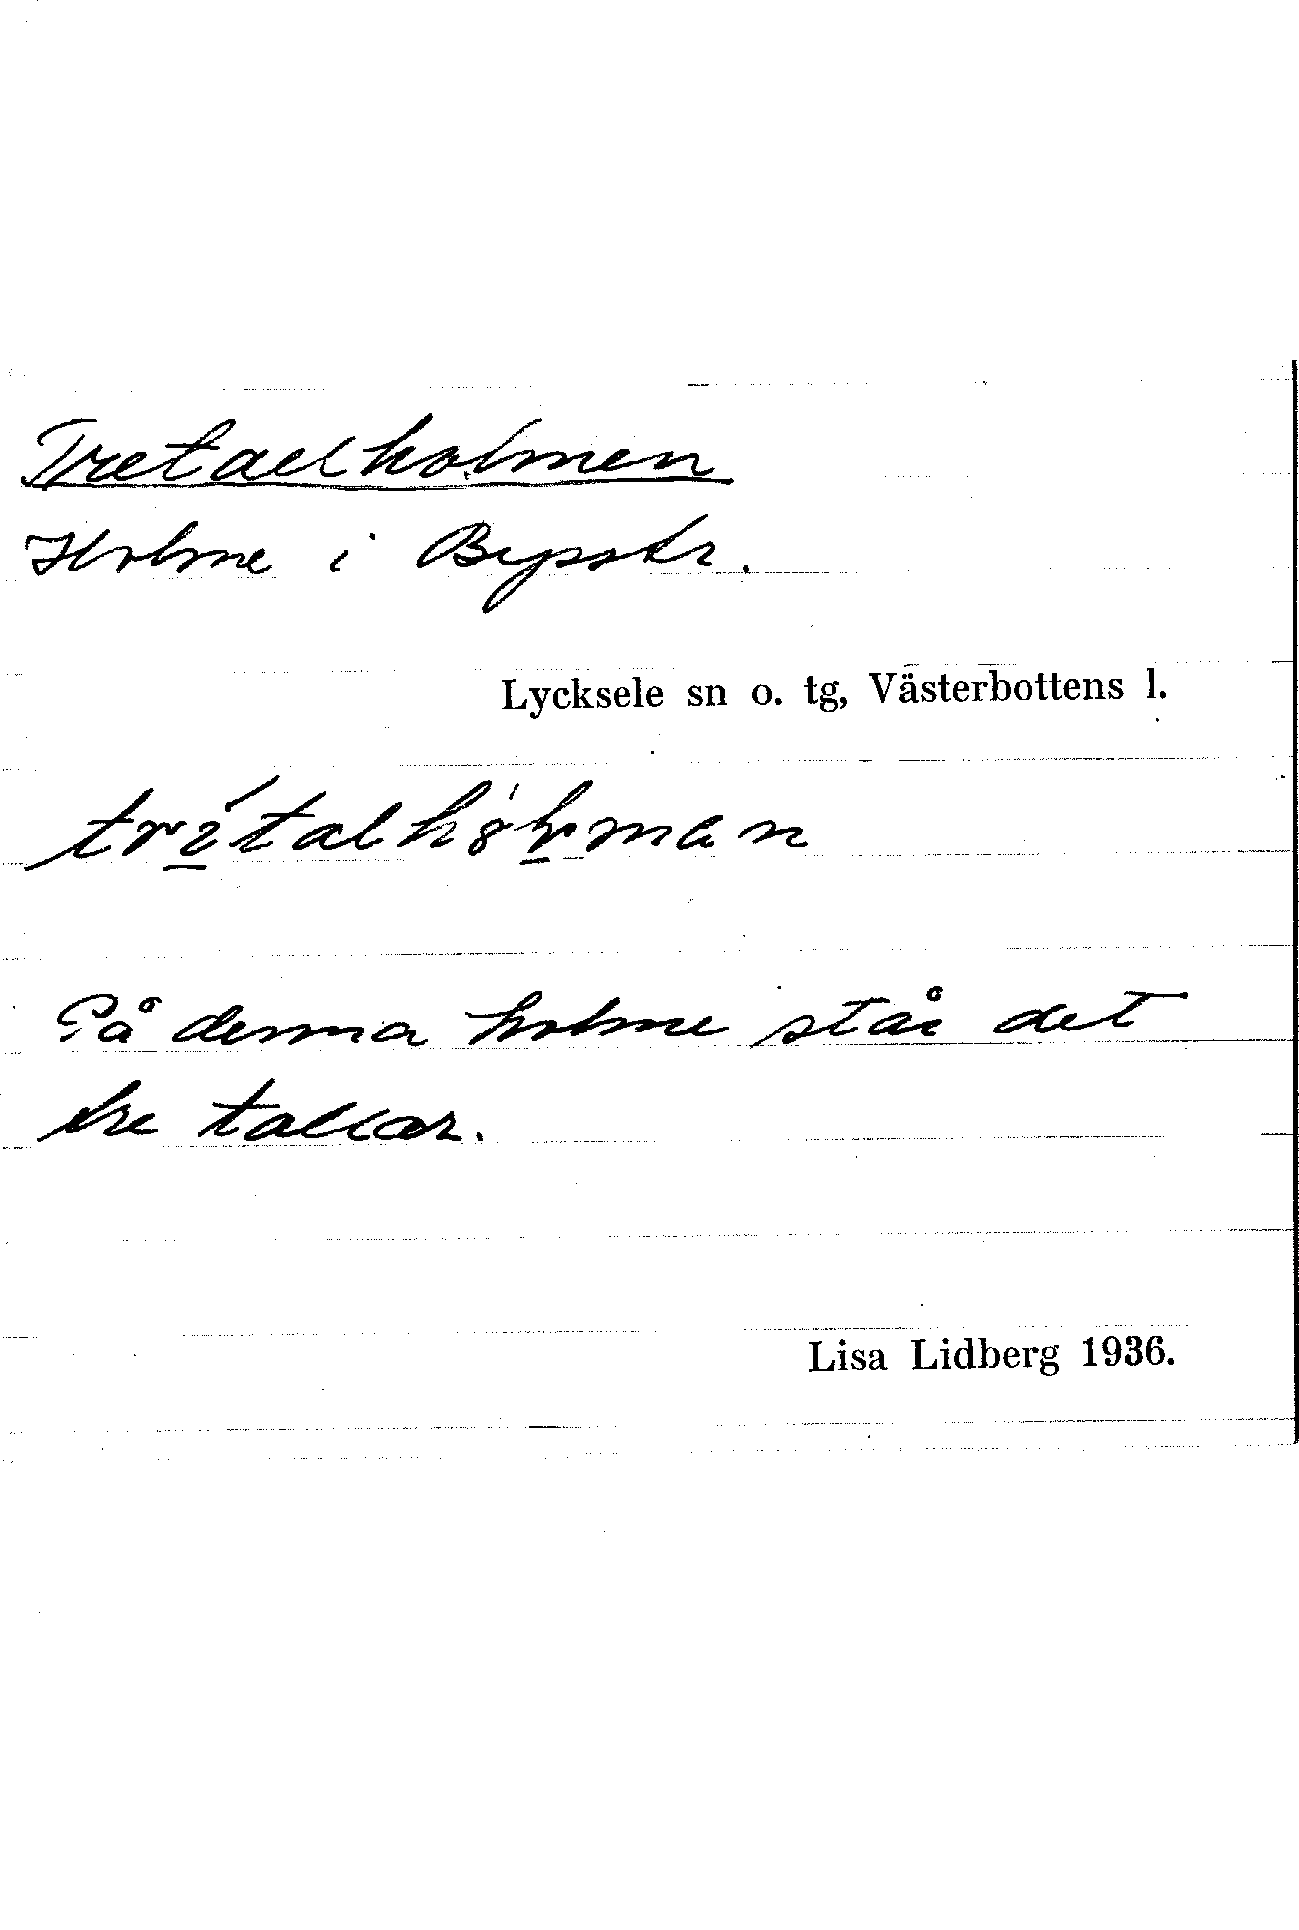 Tretallholmen
Holme i Bysstr.
Lycksele sn o. tg, Västerbottens l.
På denna holme står det
tre tallar.
Lisa Lidberg 1936.